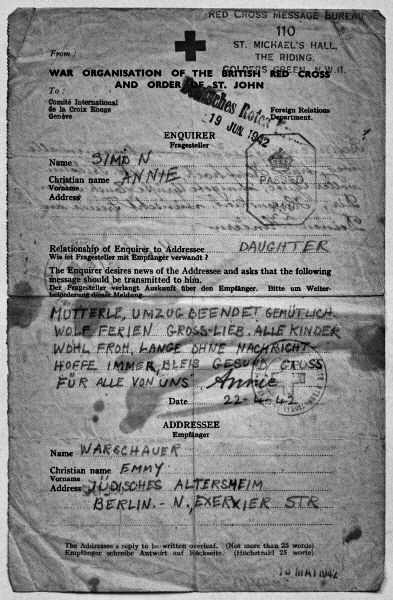 RED CROSS MESSAGE BUREAU
110
From:
ST. MICHAEL'S HALL,
THE RIDING,
GOLDERS GREEN, N.W.11.
WAR ORGANISATION OF THE BRITISH RED CROSS
AND ORDER OF ST. JOHN
To:
Comité International
de la Croix Rouge
Genève
Rotes
19 JUN 1942
Foreign Relations
Department.
ENQUIRER
Fragesteller
PASSED
Name SIMON
Christian name ANNIE
Vorname
Address
Relationship of Enquirer to Addressee DAUGHTER
Wie ist Fragesteller mit Empfänger verwandt ?
The Enquirer desires news of the Addressee and asks that the following
message should be transmitted to him.
Der Fragesteller verlangt Auskunft über den Empfänger. Bitte um Weiter-
beförderung dieser Meldung.
MUTTERLE, UMZUG BEENDET GEMÜTLICH
WOLF FERIEN GROSS-LIEB. ALLE KINDER
WOHL FROH, LANGE OHNE NACHRICHT
HOFFE IMMER, BLEIB GESUND GRUSS
FÜR ALLE VON UNS Annie
Date 22-4-42
ADDRESSEE
Empfänger
Name WARSCHAUER
Christian name EMMY
Vorname
Address JÜDISCHES ALTERSHEIM
BERLIN - N., STR
The Addressee's reply to be written overleaf. (Not more than 25 words).
Empfänger schreibe Antwort auf Rückseite. (Höchstzahl 25 worte).
MAI 1942